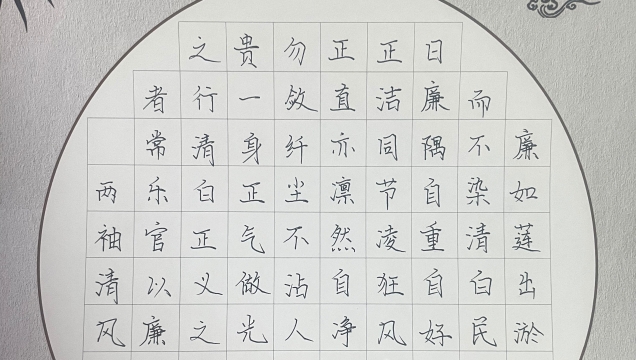 廉如莲出淤
而不染清白民
日廉隅自重自好
正洁同节凌狂风
正直亦凛然自净
勿敛纤尘不沾人
贵一身正气做光
之行清白正义之
者常乐官以廉
两袖清风